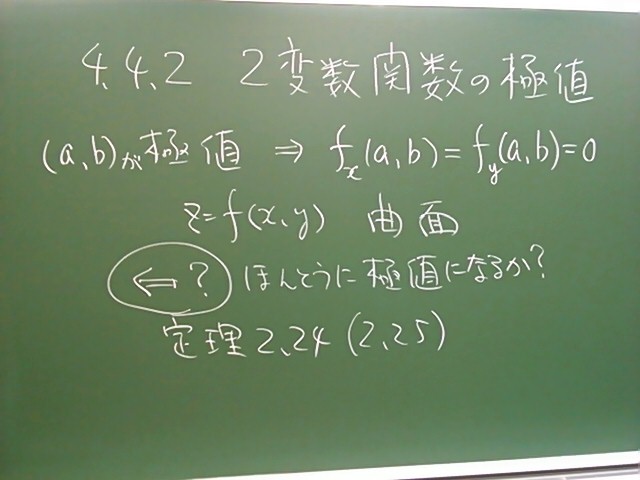 4.4.2 2変数関数の極値
(a,b)が極値 ⇒ fx(a,b)=fy(a,b)=0
z=f(x,y) 曲面
⇐? ほんとうに極値になるか?
定理2.24 (2.25)